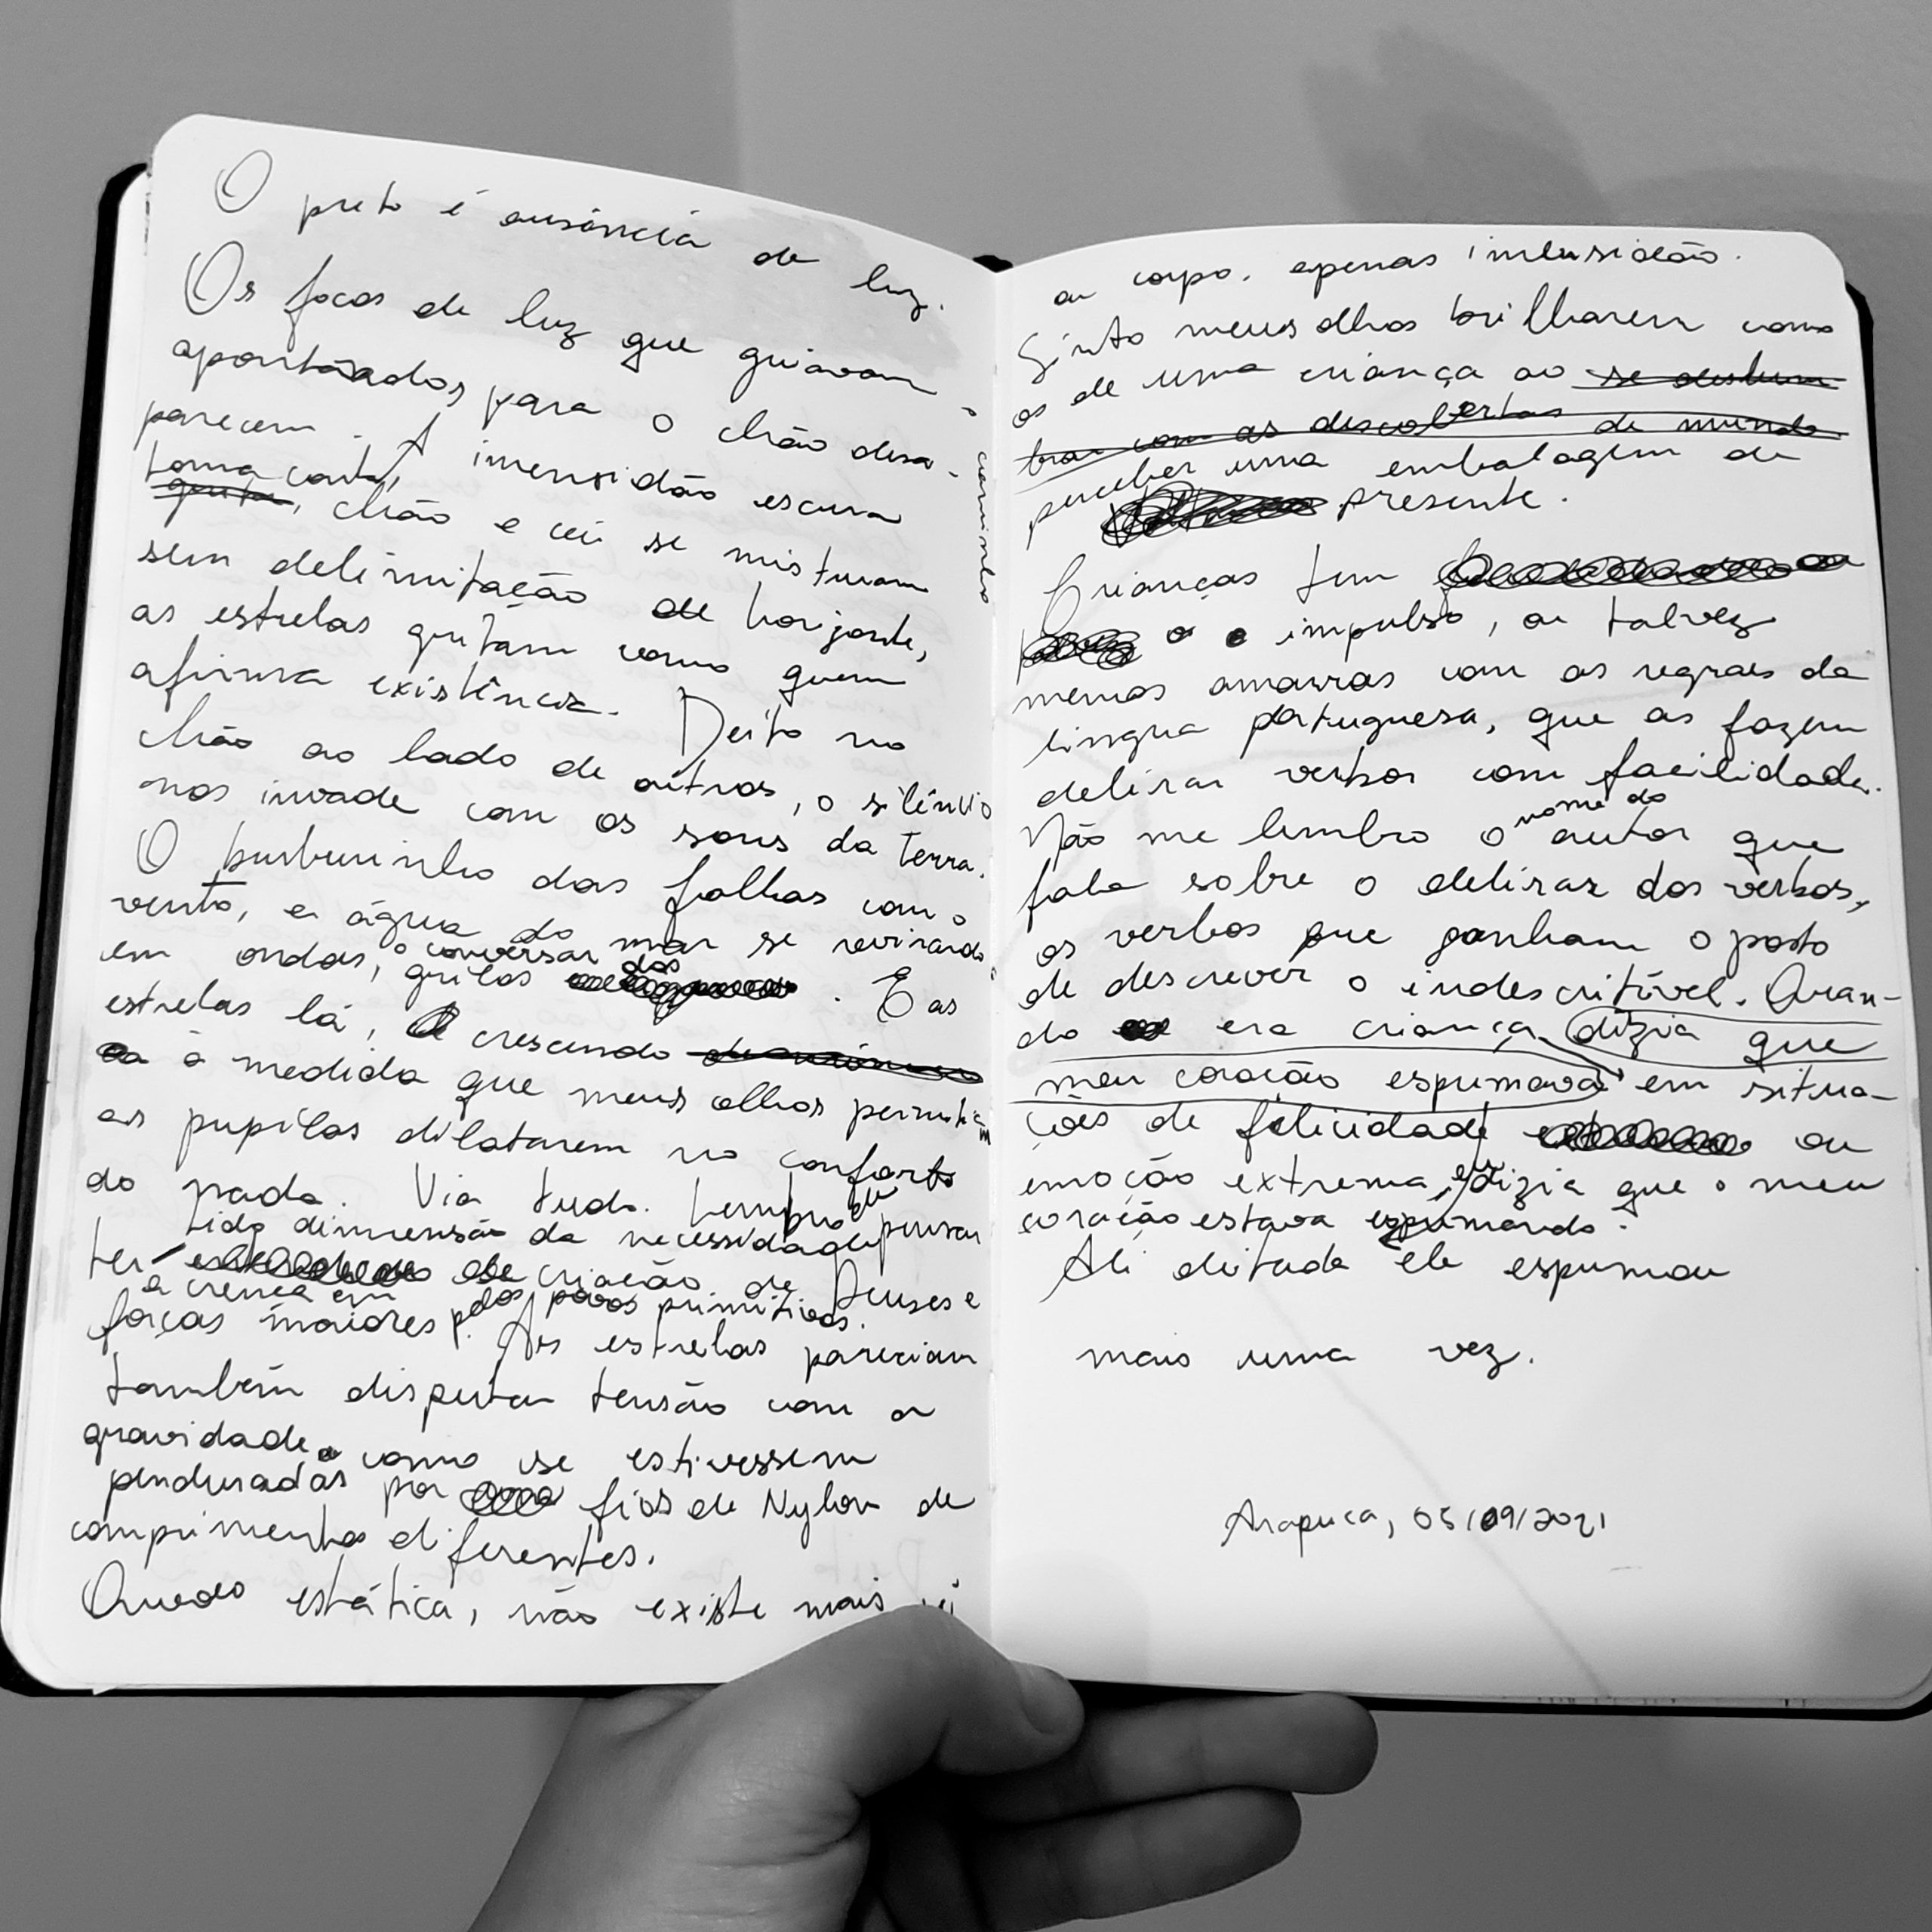 O preto é ausência de luz.
Os focos de luz que guiavam o caminho
apontados para o chão desa-
parecem. A imensidão escura
toma conta, chão e céu se misturam
sem delimitação de horizonte,
as estrelas gritam como quem
afirma existência. Deito no
chão ao lado de outros, o silêncio
nos invade com os sons da terra.
O burburinho das folhas com o
vento, a água do mar se revirando
em ondas, o conversar dos grilos. E as
estrelas lá, crescendo
à medida que meus olhos permitiam
as pupilas dilatarem no conforto
do nada. Via tudo. Lembro eu pensar
ter tido dimensão da necessidade
de criação de Deuses e
a crença em forças maiores pelos povos primitivos. As estrelas pareciam
também disputar tensão com a
gravidade como se estivessem
penduradas por fios de Nylon de
comprimentos diferentes.
Quedo estática, não existe mais
ou corpo. apenas imensidão.
Sinto meus olhos brilharem como
os de uma criança ao se deslum
brar com as descobertas de mundo
perceber uma embalagem de
presente.
Crianças tem
o impulso, ou talvez
menos amarras com as regras da
língua portuguesa, que as fazem
delirar verbos com facilidade.
Não me lembro o nome do autor que
fala sobre o delirar dos verbos,
os verbos que ganham o posto
de descrever o indescritível. Quan-
do era criança dizia que
meu coração espumava em situa-
ções de felicidade ou
emoção extrema, eu dizia que o meu
coração estava espumando.
Ali deitada ele espumou
mais uma vez.
Arapuca, 05/09/2021